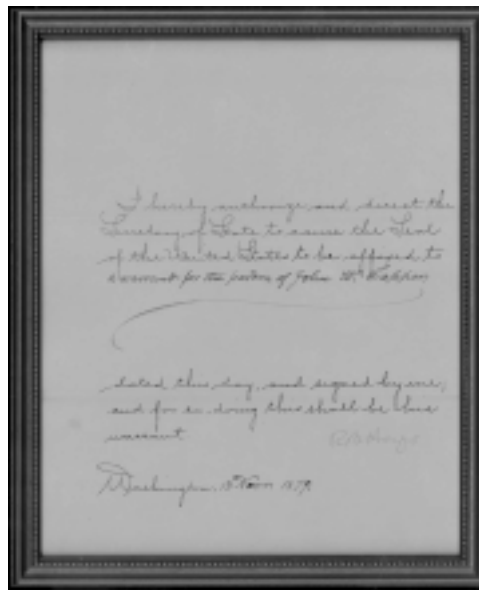 I hereby authorize and direct the
Secretary of State to cause the Seal
of the United States to be affixed to
a warrant for the pardon of John W.
dated this day, and signed by me,
and for so doing this shall be his
warrant
R B Hayes
Washington, 18 Novr 1879.